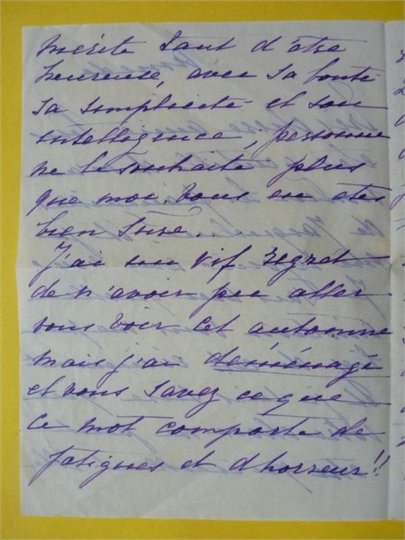 mérite tant d'être
heureuse, avec sa bonté
sa simplicité et son
intelligence, personne
ne le souhaite plus
que moi, vous en êtes
bien sûre.
J'ai un vif regret
de n'avoir pu aller
vous voir cet automne
mais j'ai déménagé
et vous savez ce que
ce mot comporte de
fatigues et d'horreur!!